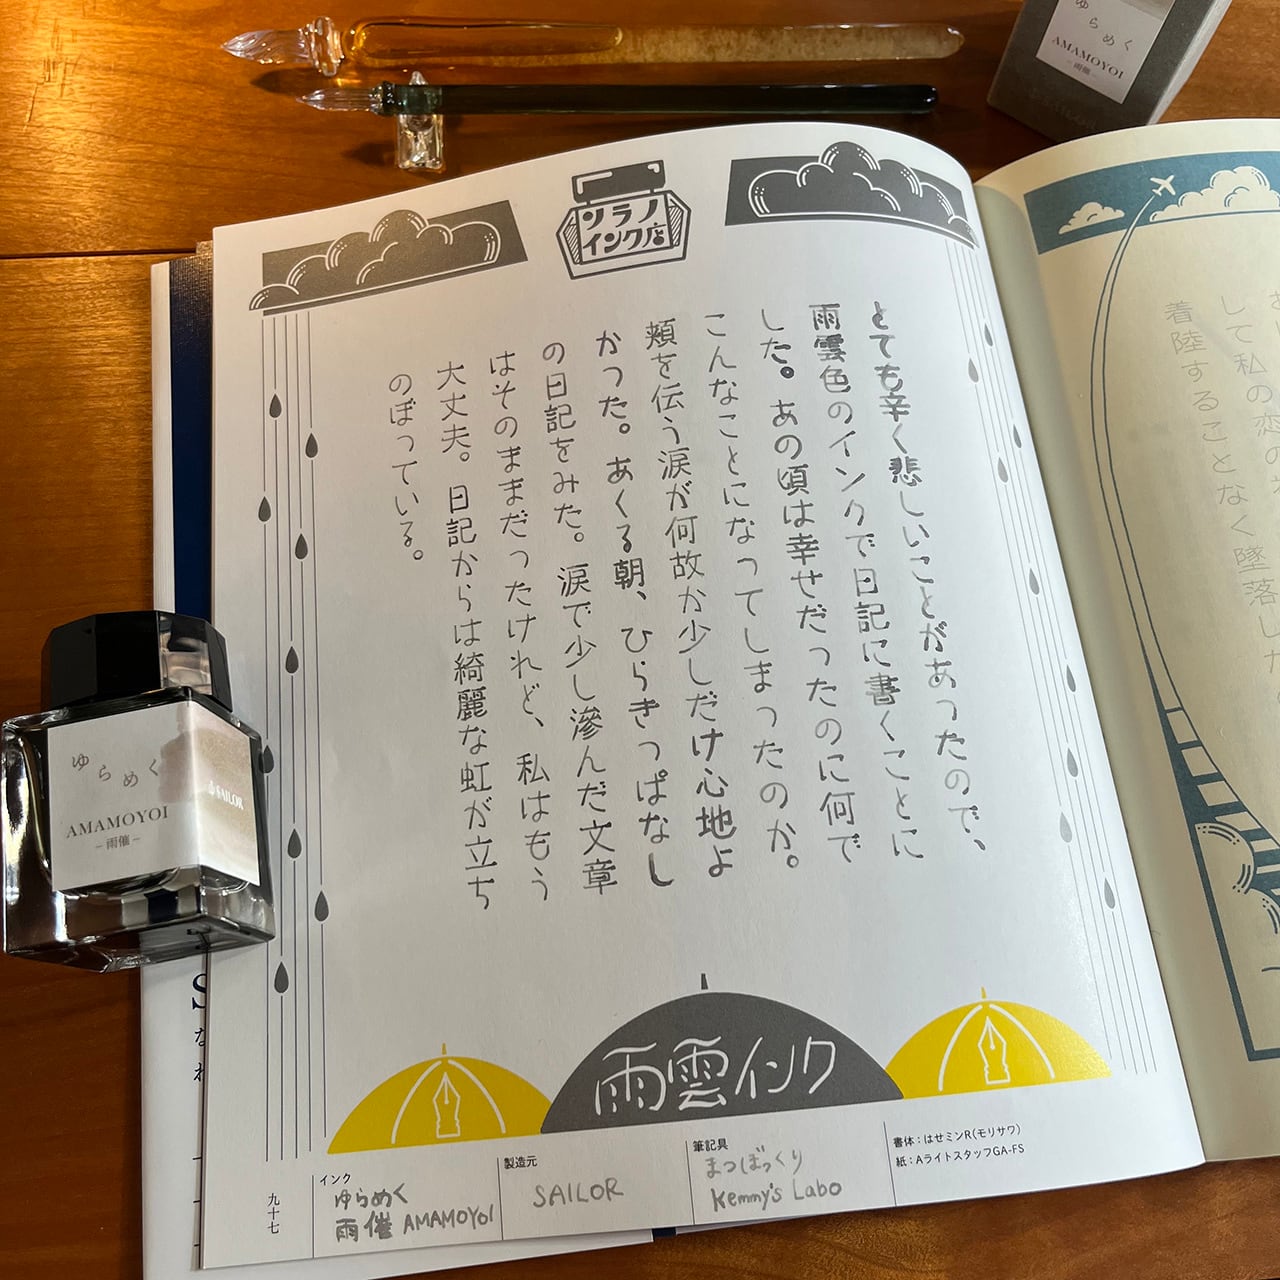 ゆらめく
AMAMOYOI
－雨催－
ソラノ
インク店
とても辛く悲しいことがあったので、
雨雲色のインクで日記に書くことに
した。あの頃は幸せだったのに何で
こんなことになってしまったのか。
頬を伝う涙が何故か少しだけ心地よ
かった。あくる朝、ひらきっぱなし
の日記をみた。涙で少し滲んだ文章
はそのままだったけれど、私はもう
大丈夫。日記からは綺麗な虹が立ち
のぼっている。
して私の恋の
着陸することなく墜落した
ゆらめく
AMAMOYOI
－雨催－
SAILOR
雨雲インク
九十七
インク
ゆらめく
雨催 AMAMOYOI
製造元
SAILOR
筆記具
まつぼっくり
Kemmy's Labo
書体：はせミンR（モリサワ）
紙：AライトスタッフGA-FS